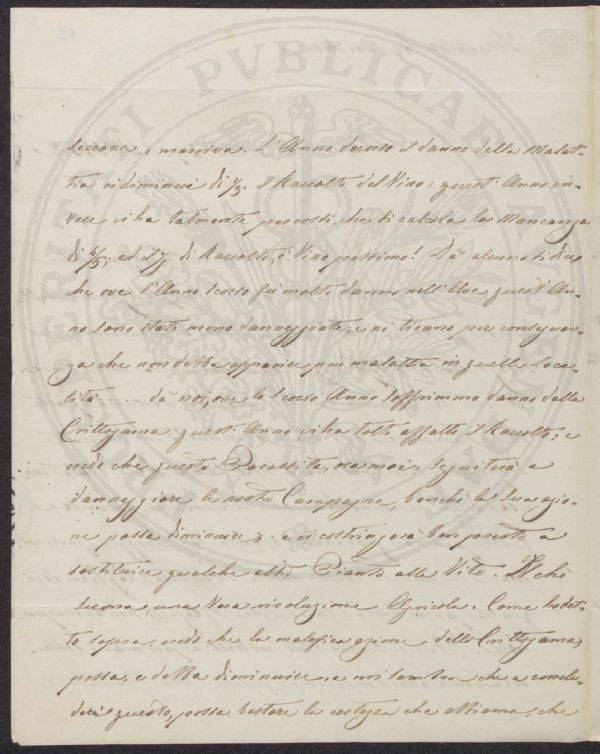 PVBLICAE
secava, o moriva. L'Anno decorso il danno della Malat-
tia ci diminuì di 1/3. il Raccolto del Vino; quest'Anno in-
vece ci ha talmente percossi, che si calcola la Mancanza
di 4/5, ed 1/5 di Raccolto, è Vino pessimo! Da alcuno si dice
che ove l'Anno scorso fù molto danno nell'Uve, quest'An-
no sono state meno danneggiate; e ne tirano per conseguen-
za che non debba apparire più malattia in quelle Loca-
lità ..... da noi, ove lo scorso Anno soffrimmo danno dalla
Crittogama, quest'Anno ci ha tolto affatto il Raccolto; e
credo che questo Parassita, ora mai, seguiterà a
danneggiare le nostre Campagne, benchè la sua azio-
ne possa diminuire, e ci costringerà ben presto a
sostituire qualche altra Pianta alla Vite. Il che
sarà una Vera rivoluzione Agricola. Come ho det-
to sopra, credo che la malefica azione della Crittogama,
possa, e debba diminuire, e mi sembra che a conclu-
dere questo, possa bastare la certezza che abbiamo, che